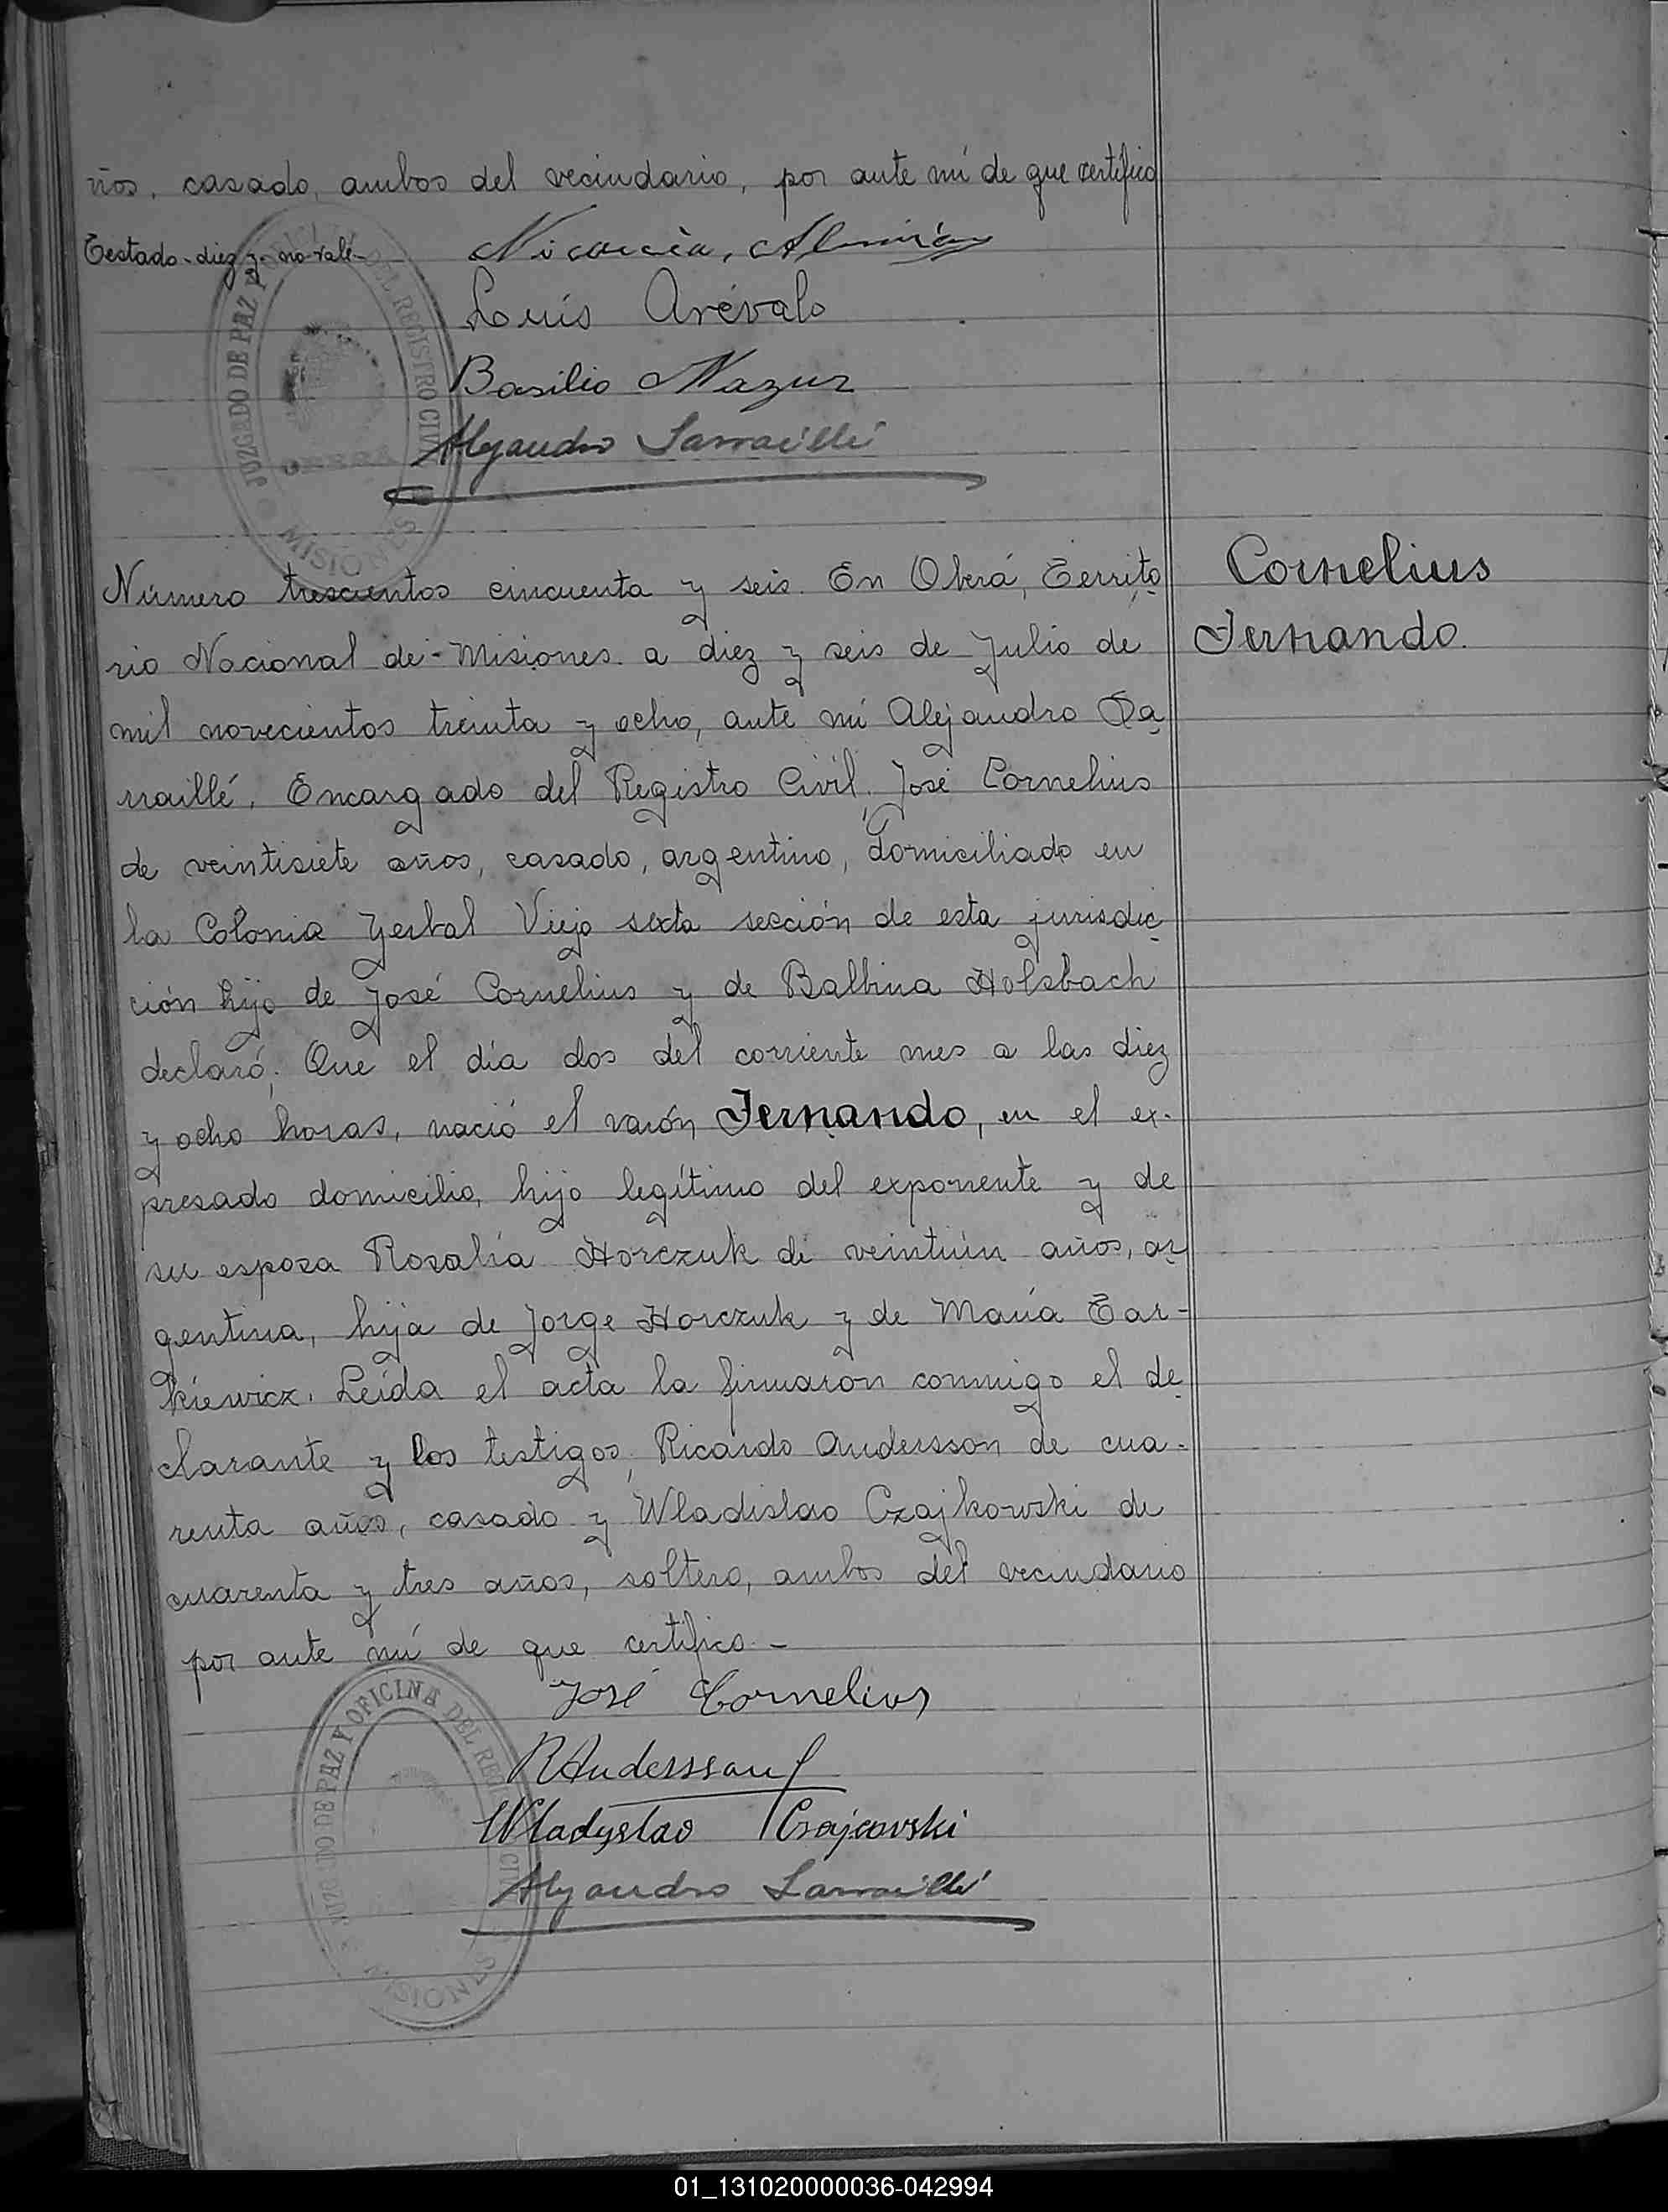 ños, casado, ambos del vecindario, por ante mí de que certifico
Testado-diez y-no vale-
Luis Arévalo
Basilio Mazur
Alejandro Sarraillé
JUZGADO DE PAZ Y OFICINA DEL REGISTRO CIVIL
OBERA
MISIONES
Número trescientos cincuenta y seis. En Oberá, Territo
rio Nacional de Misiones a diez y seis de Julio de
mil novecientos treinta y ocho, ante mí Alejandro Sa
rraillé, Encargado del Registro Civil, José Cornelius
de veintisiete años, casado, argentino, domiciliado en
la Colonia Yerbal Viejo sexta sección de esta jurisdic
ción hijo de José Cornelius y de Balbina Holsbach
declaró: Que el día dos del corriente mes a las diez
y ocho horas, nació el varón Fernando, en el ex-
presado domicilio, hijo legítimo del exponente y de
su esposa Rosalía Horczuk de veintiún años, ar
gentina, hija de Jorge Horczuk y de María Tar-
kiewicz. Leída el acta la firmaron conmigo el de
clarante y los testigos, Ricardo Andersson de cua-
renta años, casado y Wladislao Czajkowski de
cuarenta y tres años, soltero, ambos del vecindario
por ante mí de que certifico.-
José Cornelius
RAnderssonf
Wladyslao Czajcovski
Alejandro Sarraillé
JUZGADO DE PAZ Y OFICINA DEL REGISTRO CIVIL
MISIONES
Cornelius
Fernando.
01_131020000036-042994